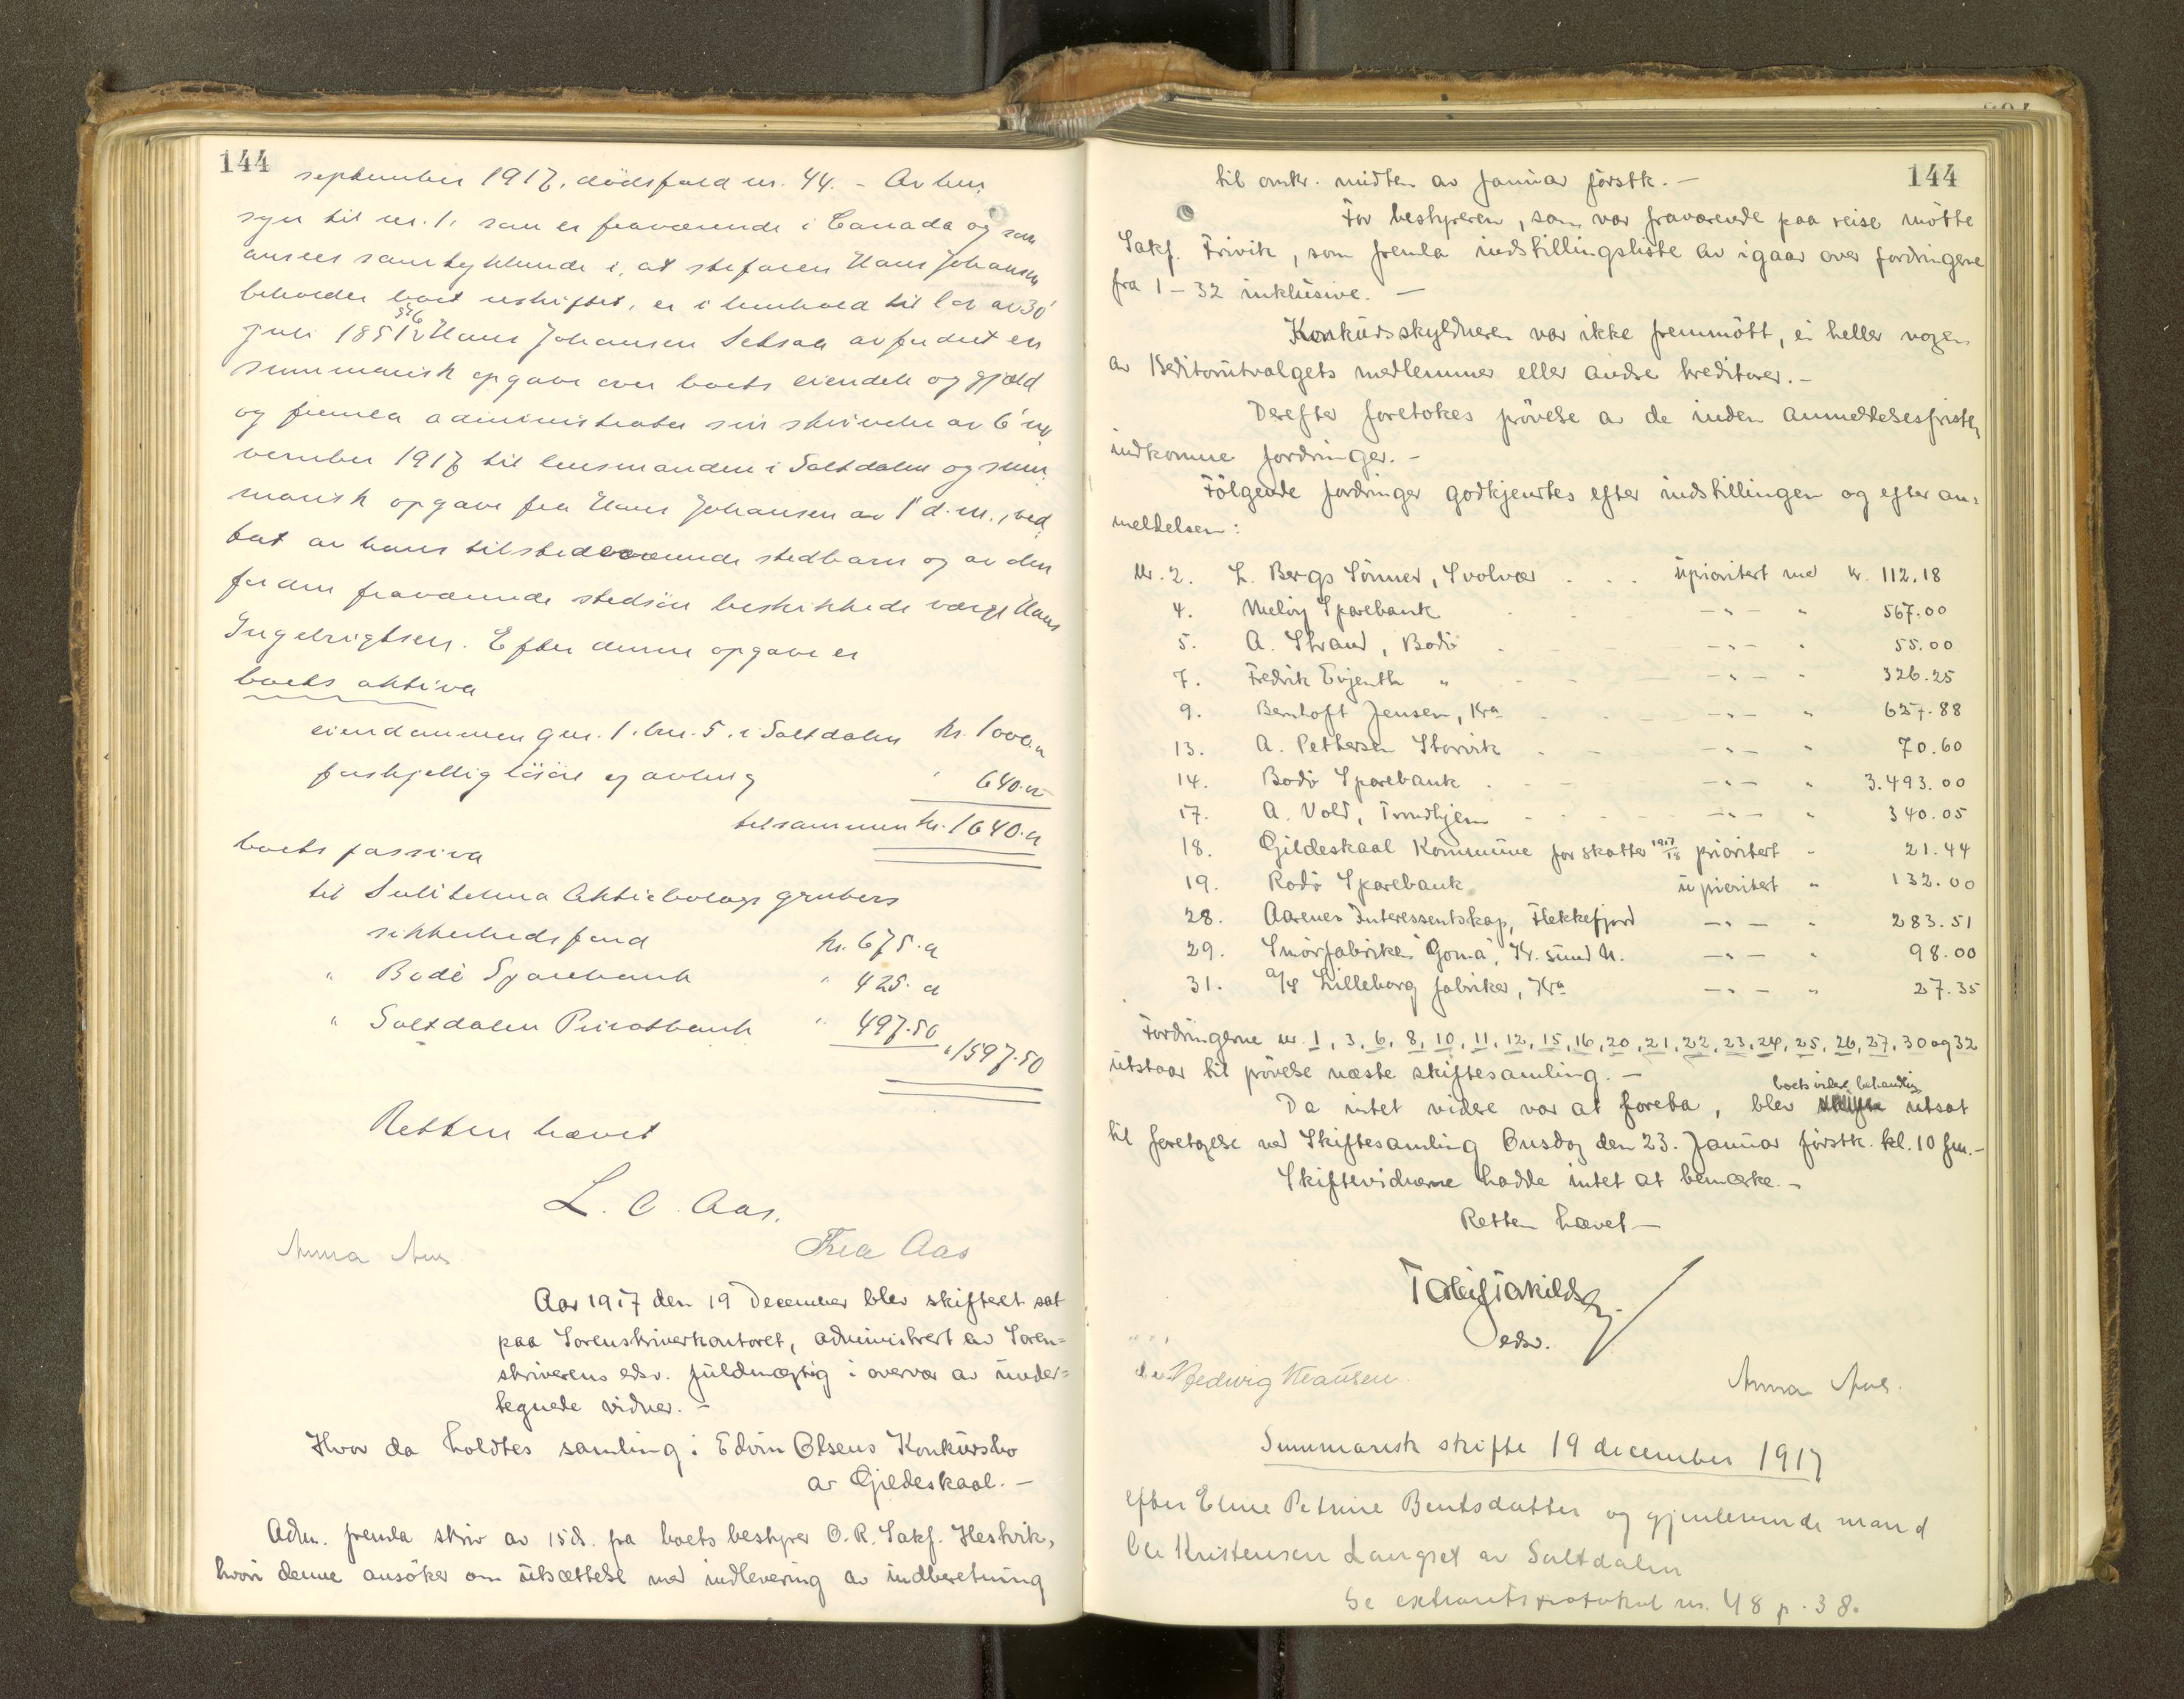 144
september 1917, dödsfald nr. 44. - Av hen¬
syn til nr. 1, som er fraværende i Canada og som
ansees samtykkende i, at stefaren Hans Johansen
beholder boet uskiftet, er i henhold til lov av 30'
juli 1851 § 12 Hans Johansen Setsaa avfordret en
summarisk opgave over boets eiendele og gjæld
og fremla administrator sin skrivelse av 6' no¬
vember 1917 til lensmanden i Saltdalen og sum¬
marisk opgave fra Hans Johansen av 1' d.m., ved¬
tat av hans tilstedeværende stedbarn og av den
for den fraværende stedsön beskikkede værge Hans
Ingebrigtsen. Efter denne opgave er
boets aktiva
eiendommen gnr. 1. bnr. 5. i Saltdalen kr. 1000.-
forskjellig lösöre og avling " 640.-
tilsammen kr. 1640.-
boets passiva
til Sulitelma Aktiebolags grubers
sikkerhedsfond kr. 675.-
" Bodö Sparebank " 425.-
" Saltdalen Privatbank " 497.50
" 1597.50
Retten hævet
L. C. Aas.
Anna Aus Thea Aas
Aar 1917 den 19 December blev skifteret sat
paa Sorenskriverkontoret, administrert av Soren=
skriverens edsv. fuldmægtig i overvær av under=
tegnede vidner. -
Hvor da holdtes samling i Edvin Olsens Konkursbo
av Gjildeskaal. -
Adm. fremla skriv av 15 ds. fra boets bestyrer O.R. Sakf. Hestvik,
hvori denne ansöker om utsættelse med indlevering av indberetning
144
til omkr. midten av Januar förstk. -
For bestyreren, som var fraværende paa reise mötte
Sakf. Trivik, som fremla indstillingsliste av igaar over fordringene
fra 1 - 32 inklusive. -
Konkursskyldneren var ikke fremmött, ei heller nogen
av Kreditorutvalgets medlemmer eller andre kreditorer. -
Derefter foretokes prövelse av de inden anmeldelsesfristen
indkomne fordringer. -
Fölgende fordringer godkjendtes efter indstillingen og efter an=
meldelsen:
Nr. 2. L. Bergs Sönner, Svolvær . . . uprioritert med kr. 112.18
4. Melöy Sparebank - " - " 567.00
5. A. Strand, Bodö - " - " 55.00
7. Fredrik Evjenth " - " - " 326.25
9. Bernhoft Jensen, Kra - " - " 627.88
13. A. Pettersen Storvik - " - " 70.60
14. Bodö Sparebank - " - " 3.493.00
17. A. Vold, Trondhjem - " - " 340.05
18. Gildeskaal Kommune for skatter 1917/18 prioritert " 21.44
19. Rodö Sparebank uprioritert " 132.00
28. Aarenes Interessentskap, Flekkefjord - " - " 283.51
29. Smörfabriken "Goma", Kr. sund N. - " - " 98.00
31. A/S Lilleborg fabriker, Kra - " - " 27.35
Fordringerne nr. 1, 3, 6, 8, 10, 11, 12, 15, 16, 20, 21, 22, 23, 24, 25, 26, 27, 30 og 32
utstaar til prövelse næste skiftesamling. -
Da intet videre var at foreta, blev boets videre behandling utsat
til foretagelse ved Skiftesamling Onsdag den 23. Januar förstk. kl. 10 fm. -
Skiftevidnerne hadde intet at bemerke. -
Retten hævet -
edsv.
Hedvig Clausen. Anna Aus.
Summarisk skifte 19 december 1917
efter Eline Petrine Bentsdatter og gjenlevende mand
Ole Kristensen Langset av Saltdalen
Se extraretsprotokol nr. 48 p. 38.